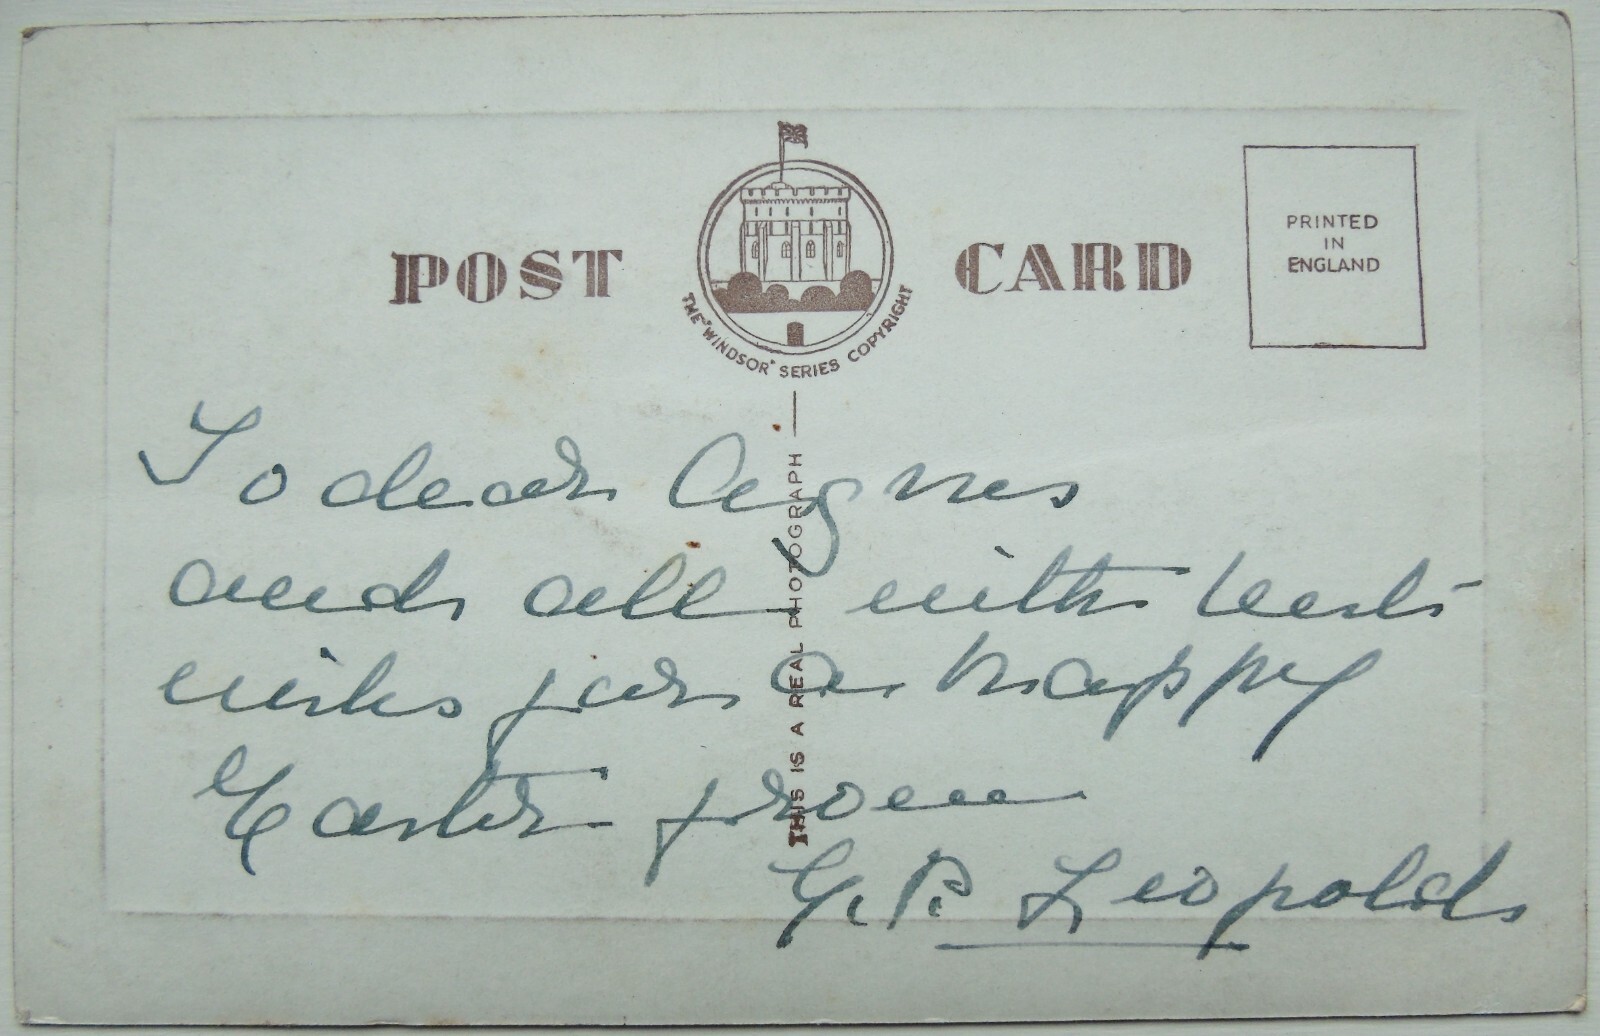 POST CARD
THE "WINDSOR" SERIES COPYRIGHT
PRINTED
IN
ENGLAND
THIS IS A REAL PHOTOGRAPH
To dear Agnes
and all with best
wishes for a happy
Easter from
G. P. Leopold